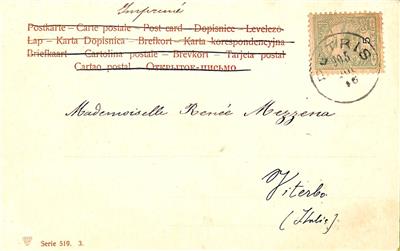 Imprimé
Postkarte – Carte postale – Post card – Dopisnice – Levelező-
Lap – Karta Dopisnica – Brefkort – Karta korespondencyjna –
Briefkaart – Cartolina postale – Brevkort – Tarjeta postal
Cartao postal – Открыток-письмо
Mademoiselle Renée Mezzena
Viterbo
(Italie)
Serie 519. 3.